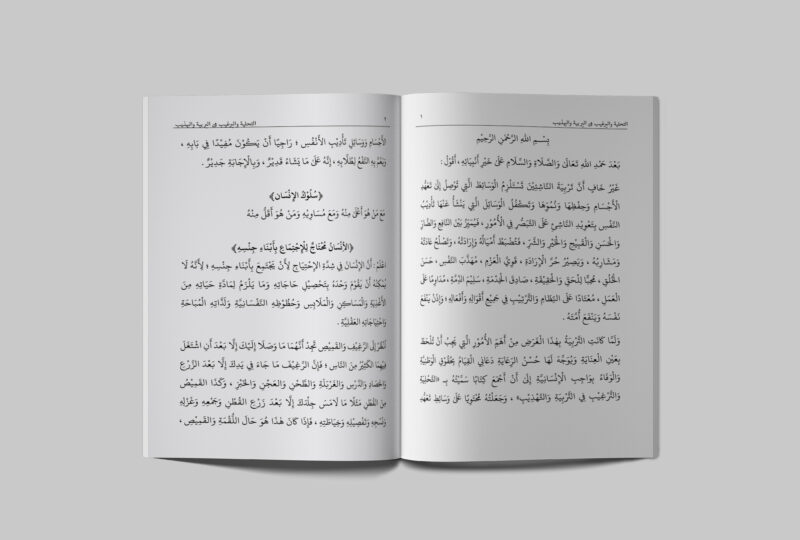 التحلية والترغيب في التربية والتهذيب
١
بِسْمِ اللهِ الرَّحْمٰنِ الرَّحِيْمِ
بَعْدَ حَمْدِ اللهِ تَعَالَىٰ وَالصَّلَاةِ وَالسَّلَامِ عَلَىٰ خَيْرِ أَنْبِيَائِهِ ، أَقُوْلُ :
غَيْرُ خَافٍ أَنَّ تَرْبِيَةَ النَّاشِئِيْنَ تَسْتَلْزِمُ الْوَسَائِطَ الَّتِي تُوْصِلُ إِلَىٰ تَعَهُّدِ
الْأَجْسَامِ وَحِفْظِهَا وَنُمُوِّهَا وَتَكْفُلُ الْوَسَائِلَ الَّتِي يَنْشَأُ عَنْهَا تَأْدِيْبُ
النَّفْسِ بِتَعْوِيْدِ النَّاشِئِ عَلَى التَّبَصُّرِ فِي الْأُمُوْرِ ، فَيُمَيِّزُ بَيْنَ النَّافِعِ وَالضَّارِّ
وَالْحَسَنِ وَالْقَبِيْحِ وَالْخَيْرِ وَالشَّرِّ ، فَتُضْبَطُ أَمْيَالُهُ وَإِرَادَتُهُ ، وَتَصْلُحُ عَادَتُهُ
وَمَشَارِبُهُ ، وَيَصِيْرُ حُرَّ الْإِرَادَةِ ، قَوِيَّ الْعَزْمِ ، مُهَذَّبَ النَّفْسِ ، حَسَنَ
الْخُلُقِ ، مُحِبًّا لِلْحَقِّ وَالْحَقِيْقَةِ ، صَادِقَ الْخِدْمَةِ ، سَلِيْمَ الذِّمَّةِ ، مُدَاوِمًا عَلَى
الْعَمَلِ ، مُعْتَادًا عَلَى النِّظَامِ وَالتَّرْتِيْبِ فِي جَمِيْعِ أَقْوَالِهِ وَأَفْعَالِهِ ؛ وَإِذَنْ يَنْفَعُ
نَفْسَهُ وَيَنْفَعُ أُمَّتَهُ .
وَلَمَّا كَانَتِ التَّرْبِيَةُ بِهٰذَا الْغَرَضِ مِنْ أَهَمِّ الْأُمُوْرِ الَّتِي يَجِبُ أَنْ تُلْحَظَ
بِعَيْنِ الْعِنَايَةِ وَيُوَجَّهَ لَهَا حُسْنُ الرِّعَايَةِ دَعَانِي الْقِيَامُ بِحُقُوْقِ الْوَطَنِيَّةِ
وَالْوَفَاءُ بِوَاجِبِ الْإِنْسَانِيَّةِ إِلَىٰ أَنْ أَجْمَعَ كِتَابًا سَمَّيْتُهُ بِـ «التَّحْلِيَةِ
وَالتَّرْغِيْبِ فِي التَّرْبِيَةِ وَالتَّهْذِيْبِ» ، وَجَعَلْتُهُ مُحْتَوِيًا عَلَىٰ وَسَائِطِ تَعَهُّدِ
٢
التحلية والترغيب في التربية والتهذيب
الْأَجْسَامِ وَوَسَائِلِ تَأْدِيْبِ الْأَنْفُسِ ؛ رَاجِيًا أَنْ يَكُوْنَ مُفِيْدًا فِي بَابِهِ ،
وَيَعُمَّ بِهِ النَّفْعُ لِطُلَّابِهِ ، إِنَّهُ عَلَىٰ مَا يَشَاءُ قَدِيْرٌ ، وَبِالْإِجَابَةِ جَدِيْرٌ .
﴿سُلُوْكُ الْإِنْسَانِ﴾
مَعَ مَنْ هُوَ أَعْلَىٰ مِنْهُ وَمَعَ مُسَاوِيْهِ وَمَنْ هُوَ أَقَلُّ مِنْهُ
﴿الْإِنْسَانُ مُحْتَاجٌ لِلْاِجْتِمَاعِ بِأَبْنَاءِ جِنْسِهِ﴾
اِعْلَمْ : أَنَّ الْإِنْسَانَ فِي شِدَّةِ الْاِحْتِيَاجِ لِأَنْ يَجْتَمِعَ بِأَبْنَاءِ جِنْسِهِ ؛ لِأَنَّهُ لَا
يُمْكِنُهُ أَنْ يَقُوْمَ وَحْدَهُ بِتَحْصِيْلِ حَاجَاتِهِ وَمَا يَلْزَمُ لِمَادَّةِ حَيَاتِهِ مِنَ
الْأَغْذِيَةِ وَالْمَسَاكِنِ وَالْمَلَابِسِ وَحُظُوْظِهِ النَّفْسَانِيَّةِ وَلَذَّاتِهِ الْمُبَاحَةِ
وَاحْتِيَاجَاتِهِ الْعَقْلِيَّةِ .
اُنْظُرْ إِلَى الرَّغِيْفِ وَالْقَمِيْصِ تَجِدْ أَنَّهُمَا مَا وَصَلَا إِلَيْكَ إِلَّا بَعْدَ أَنِ اشْتَغَلَ
فِيْهِمَا الْكَثِيْرُ مِنَ النَّاسِ ؛ فَإِنَّ الرَّغِيْفَ مَا جَاءَ فِي يَدِكَ إِلَّا بَعْدَ الزَّرْعِ
وَالْحَصَادِ وَالدَّرْسِ وَالْغَرْبَلَةِ وَالطَّحْنِ وَالْعَجْنِ وَالْخَبْزِ ، وَكَذَا الْقَمِيْصُ
مِنَ الْقُطْنِ مَثَلًا مَا لَامَسَ جِلْدَكَ إِلَّا بَعْدَ زَرْعِ الْقُطْنِ وَجَمْعِهِ وَغَزْلِهِ
وَنَسْجِهِ وَتَفْصِيْلِهِ وَخِيَاطَتِهِ ، فَإِذَا كَانَ هٰذَا هُوَ حَالَ اللُّقْمَةِ وَالْقَمِيْصِ ،